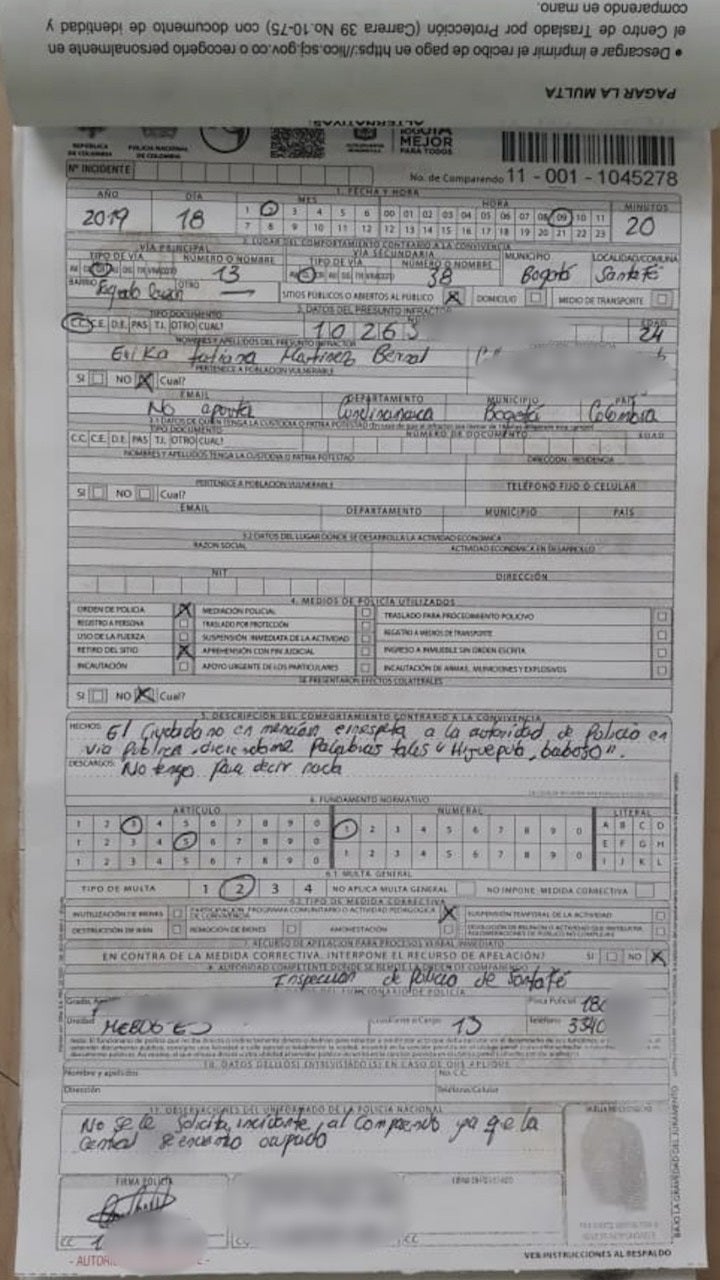 comparendo en mano.
el Centro de Traslado por Protección (Carrera 39 No.10-75) con documento de identidad y
• Descargar e imprimir el recibo de pago en https://lico.scj.gov.co o recogerlo personalmente en
PAGAR LA MULTA
ALTERNATIVAS:
REPÚBLICA DE COLOMBIA POLICÍA NACIONAL DE COLOMBIA BOGOTÁ MEJOR PARA TODOS
Nº INCIDENTE No. de Comparendo 11 - 001 - 1045278
1. FECHA Y HORA
AÑO DÍA MES HORA MINUTOS
2019 18 1 2 3 4 5 6 00 01 02 03 04 05 06 07 08 09 10 11 20
7 8 9 10 11 12 12 13 14 15 16 17 18 19 20 21 22 23
2. LUGAR DEL COMPORTAMIENTO CONTRARIO A LA CONVIVENCIA
VÍA PRINCIPAL VÍA SECUNDARIA
TIPO DE VÍA NÚMERO O NOMBRE TIPO DE VÍA NÚMERO O NOMBRE MUNICIPIO LOCALIDAD/COMUNA
13 38 Bogotá Santa Fé
BARRIO OTRO SITIOS PÚBLICOS O ABIERTOS AL PÚBLICO X DOMICILIO MEDIO DE TRANSPORTE
3. DATOS DEL PRESUNTO INFRACTOR
TIPO DOCUMENTO EDAD
C.C. C.E. D.E. PAS T.I. OTRO CUAL? 10265 24
NOMBRES Y APELLIDOS DEL PRESUNTO INFRACTOR
Erika Tatiana Martinez Bernal
PERTENECE A POBLACION VULNERABLE
SI NO X Cual?
EMAIL DEPARTAMENTO MUNICIPIO PAÍS
No aporta Cundinamarca Bogotá Colombia
3.1 DATOS DE QUIEN TENGA LA CUSTODIA O PATRIA POTESTAD
TIPO DOCUMENTO NÚMERO DE DOCUMENTO EDAD
C.C. C.E. D.E. PAS T.I. OTRO CUAL?
NOMBRES Y APELLIDOS TENGA LA CUSTODIA O PATRIA POTESTAD DIRECCIÓN - RESIDENCIA
PERTENECE A POBLACION VULNERABLE TELÉFONO FIJO O CELULAR
SI NO Cual?
EMAIL DEPARTAMENTO MUNICIPIO PAÍS
3.2 DATOS DEL LUGAR DONDE SE DESARROLLA LA ACTIVIDAD ECONÓMICA
RAZON SOCIAL ACTIVIDAD ECONÓMICA EN DESARROLLO
NIT DIRECCIÓN
4. MEDIOS DE POLICÍA UTILIZADOS
ORDEN DE POLICIA X MEDIACIÓN POLICIAL TRASLADO PARA PROCEDIMIENTO POLICIVO
REGISTRO A PERSONA TRASLADO POR PROTECCIÓN REGISTRO A MEDIOS DE TRANSPORTE
USO DE LA FUERZA SUSPENSIÓN INMEDIATA DE LA ACTIVIDAD
RETIRO DEL SITIO X APREHENSIÓN CON FIN JUDICIAL INGRESO A INMUEBLE SIN ORDEN ESCRITA
INCAUTACIÓN APOYO URGENTE DE LOS PARTICULARES INCAUTACIÓN DE ARMAS, MUNICIONES Y EXPLOSIVOS
SE PRESENTARON EFECTOS COLATERALES
SI NO X Cual?
5. DESCRIPCIÓN DEL COMPORTAMIENTO CONTRARIO A LA CONVIVENCIA
HECHOS: El Ciudadano en mención irrespeta a la autoridad de Policía en
via publica diciendome Palabras tales "Hijueputa, baboso".
DESCARGOS: No tengo para decir nada
6. FUNDAMENTO NORMATIVO
ARTÍCULO NUMERAL LITERAL
1 2 3 4 5 6 7 8 9 0 1 2 3 4 5 6 7 8 9 0 A B C D
1 2 3 4 5 6 7 8 9 0 E F G H
1 2 3 4 5 6 7 8 9 0 1 2 3 4 5 6 7 8 9 0 I J K L
6.1. MULTA GENERAL
TIPO DE MULTA 1 2 3 4 NO APLICA MULTA GENERAL NO IMPONE MEDIDA CORRECTIVA
6.2. TIPO DE MEDIDA CORRECTIVA
INUTILIZACIÓN DE BIENES PARTICIPACIÓN PROGRAMA COMUNITARIO O ACTIVIDAD PEDAGÓGICA DE CONVIVENCIA X SUSPENSIÓN TEMPORAL DE LA ACTIVIDAD
DESTRUCCIÓN DE BIEN REMOCIÓN DE BIENES AMONESTACIÓN
7. RECURSO DE APELACIÓN PARA PROCESOS VERBAL INMEDIATO
EN CONTRA DE LA MEDIDA CORRECTIVA. INTERPONE EL RECURSO DE APELACIÓN? SI NO X
8. AUTORIDAD COMPETENTE DONDE SE REMITE LA ORDEN DE COMPARENDO
Inspección de policía de Santafé
DATOS DEL FUNCIONARIO DE POLICÍA
Grado, Placa Policial 180
Unidad Cuadrante a Cargo 13 Teléfono 3340
10. DATOS DEL(LOS) ENTREVISTADO (S) EN CASO DE QUE APLIQUE
Nombre y apellidos No. C.C.
Dirección Teléfono/Celular
11. OBSERVACIONES DEL UNIFORMADO DE LA POLICÍA NACIONAL
No se le solicita incidente al Comparendo ya que la
Central se encuentra ocupada
FIRMA POLICÍA
C.C. 1 C.C. C.C.
BAJO LA GRAVEDAD DEL JURAMENTO
VER INSTRUCCIONES AL RESPALDO